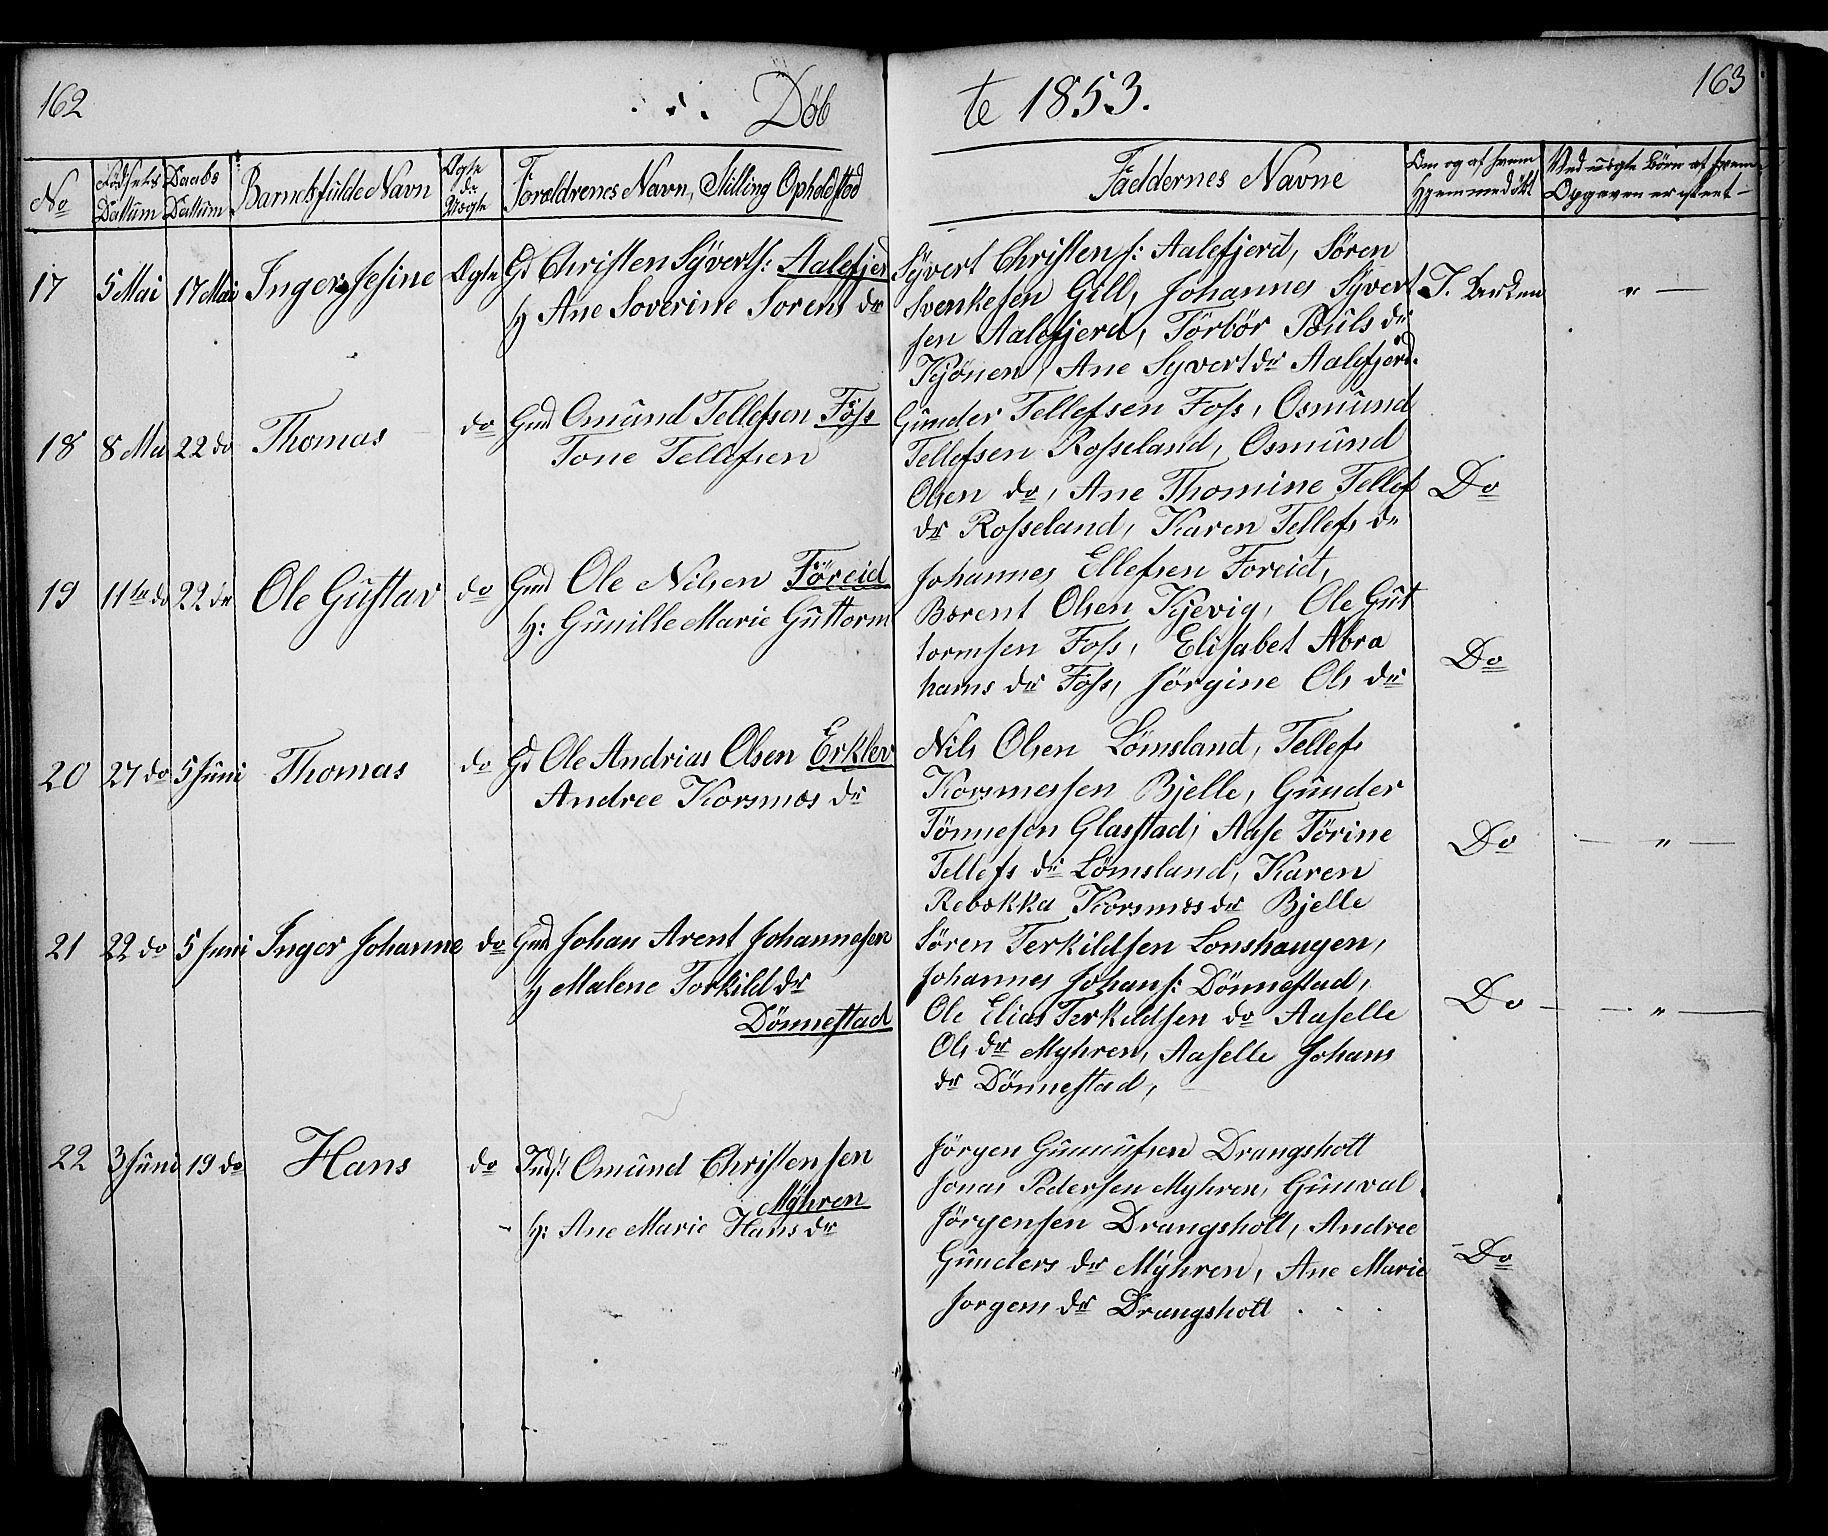 162
Döb
te 1853.
163
No
Födsels Dattum
Daabs Dattum
Barnets fulde Navn
Ægte du Uægte
Foraldrenes Navn, Stilling Opholdstad
Faddernes Navne
Om og af hvem Hjemmedöbt
Ved uægte Börn af hvem Opgaven er
17 5 Mai 17 Mai Inger Jesine Ægte Gd Christen Syverts: Aalefjer
H Ane Soverine Sorens dr
Syvert Christens: Aalefjerd, Sören
Svenkesen Gill, Johannes Syvert
sen Aalefjerd, Törbör Pouls dr
Kjönen, Ane Syvert dr Aalefjerd.
I. Kirken " —
18 8 Mai 22 do Thomas do Gmd Omund Tellefsen Foss
Tone Tellefsen
Gunder Tellefsen Foss, Osmund
Tellefsen Rosseland, Osmund
Olsen do, Ane Thomine Tellef
dr Rosseland, Karen Tellefs dr
Do
19 11te do 22 do Ole Gustav do Gmd Ole Nilsen Föreid
H: Gunille Marie Guttorm
Johannes Ellefsen Foreid,
Bærent Olsen Kjevig, Ole Gut
tormsen Foss, Elisabet Abra
hams dr Foss, Jörgine Ols dr
Do
20 27 do 5 Juni Thomas do Gd Ole Andrias Olsen Erklev
Andree Korsmos dr
Nils Olsen Lömsland, Tellefs
Korsmessen Bjelle, Gunder
Tönnesen Glasstad, Aase Törine
Tellefs dr Lömsland, Karen
Rebækka Korsmos dr Bjelle
Do — " —
21 22 do 5 Juni Inger Johanne do Gmd Johan Arent Johannesen
H Malene Torkild dr
Dönnestad
Sören Terkildsen Lonshaugen,
Johannes Johans: Dönnestad,
Ole Elias Terkildsen do Aaselle
Ols dr Myhren, Aaselle Johans
dr Dönnestad,
Do — — " —
22 3 Juni 19 do Hans do Indst Omund Christensen
Myhren
H: Ane Marie Hans dr
Jörgen Gunnufsen Drangsholt
Jonas Pedersen Myhren, Gunval
Jörgensen Drangsholt, Andree
Gunders dr Myhren, Ane Marie
Jorgens dr Drangsholt
Do